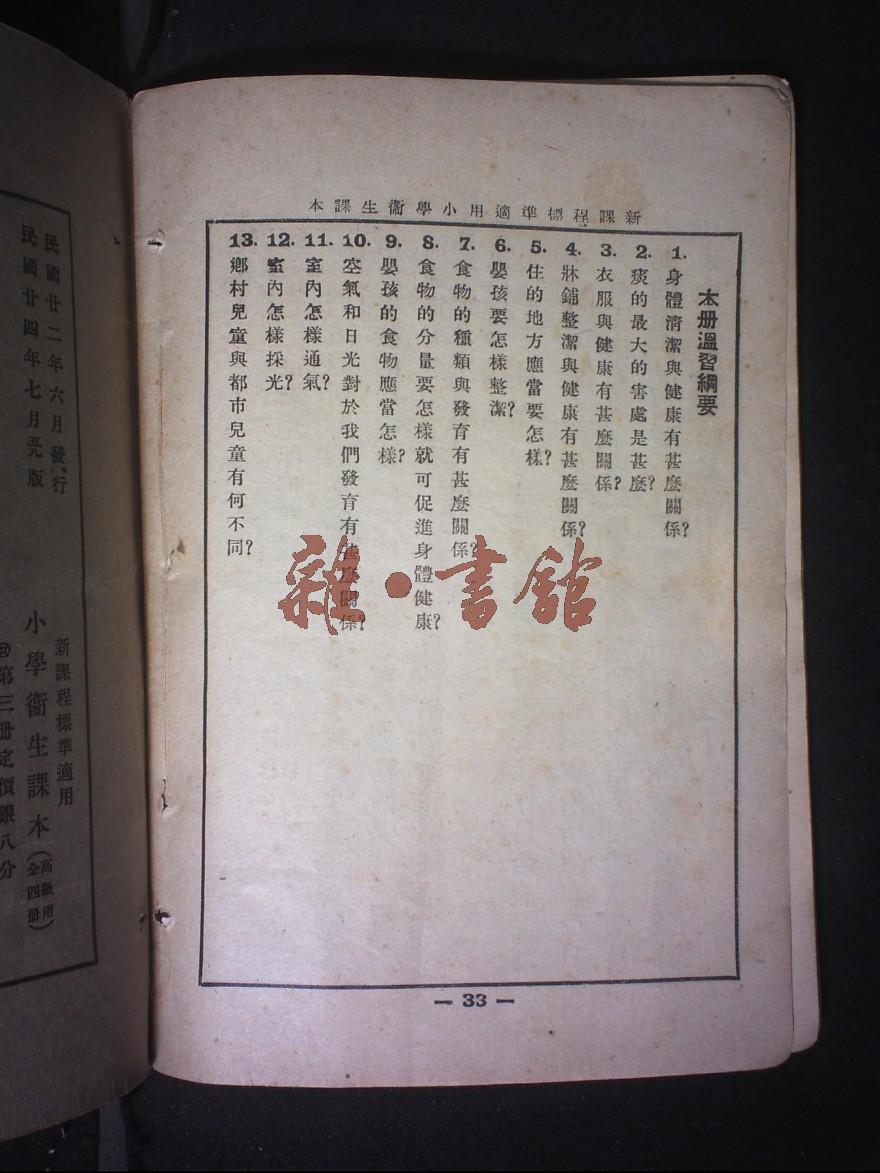 新課程標準適用小學衞生課本
本册溫習綱要
1. 身體清潔與健康有甚麼關係?
2. 痰的最大的害處是甚麼?
3. 衣服與健康有甚麼關係?
4. 牀鋪整潔與健康有甚麼關係?
5. 住的地方應當要怎樣?
6. 嬰孩要怎樣整潔?
7. 食物的種類與發育有甚麼關係?
8. 食物的分量要怎樣就可促進身體健康?
9. 嬰孩的食物應當怎樣?
10. 空氣和日光對於我們發育有甚麼關係?
11. 室內怎樣通氣?
12. 室內怎樣採光?
13. 鄉村兒童與都市兒童有何不同?
— 33 —
雜·書館
民國廿二年六月發行
民國廿四年七月九版
新課程標準適用
小學衞生課本(高級用全四册)
第三册定價銀八分